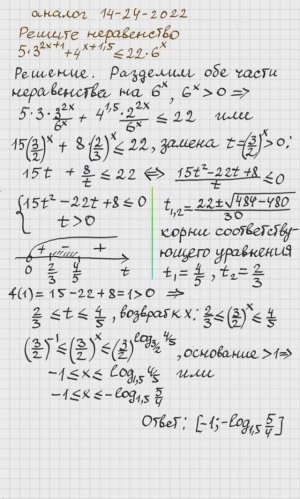 аналог 14-24-2022
Решите неравенство
5·3^{2x+1}+4^{x+1,5}≤22·6^x
Решение. Разделим обе части
неравенства на 6^x, 6^x>0 ⇒
5·3·3^{2x}/6^x + 4^{1,5}·2^{2x}/6^x ≤ 22 или
15(3/2)^x + 8(2/3)^x ≤ 22, замена t=(3/2)^x>0;
15t + 8/t ≤ 22 ⇔ (15t²-22t+8)/t ≤ 0
{15t²-22t+8≤0
t>0
t₁,₂ = (22±√(484-480))/30
корни соответству-
ющего уравнения
t₁=4/5, t₂=2/3
+ - +
0 2/3 4/5 t
f(1)=15-22+8=1>0 ⇒
2/3 ≤ t ≤ 4/5, возврат к x: 2/3 ≤ (3/2)^x ≤ 4/5
(3/2)^{-1} ≤ (3/2)^x ≤ (3/2)^{log_{3/2} 4/5}, основание >1 ⇒
-1≤x≤ log_{1,5} 4/5 или
-1≤x≤-log_{1,5} 5/4
Ответ: [-1;-log_{1,5} 5/4]